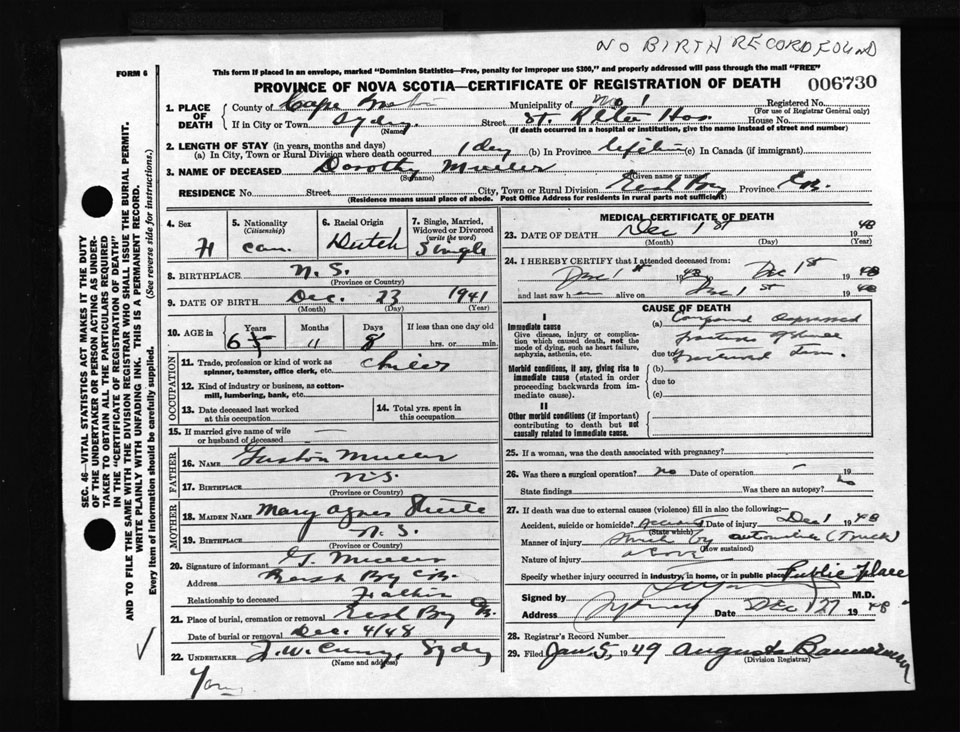 NO BIRTH RECORD FOUND
FORM 6
This form if placed in an envelope, marked "Dominion Statistics—Free, penalty for improper use $300," and properly addressed will pass through the mail "FREE"
PROVINCE OF NOVA SCOTIA—CERTIFICATE OF REGISTRATION OF DEATH 006730
1. PLACE OF DEATH County of Cape Municipality of No 1 Registered No.
(For use of Registrar General only)
If in City or Town Sydney Street St. Hos. House No.
(Name) (If death occurred in a hospital or institution, give the name instead of street and number)
2. LENGTH OF STAY (in years, months and days)
(a) In City, Town or Rural Division where death occurred 1 day (b) In Province (c) In Canada (if immigrant)
3. NAME OF DECEASED Dorothy
(Surname) (Given name or names)
RESIDENCE No Street City, Town or Rural Division Province C.B.
(Residence means usual place of abode. Post Office Address for residents in rural parts not sufficient)
4. Sex
5. Nationality
(Citizenship)
Can.
6. Racial Origin
Dutch
7. Single, Married, Widowed or Divorced
(write the word)
Single
8. BIRTHPLACE N.S.
(Province or Country)
9. DATE OF BIRTH Dec. 23 1941
(Month) (Day) (Year)
10. AGE in Years Months Days If less than one day old
6 11 8 hrs. or min.
OCCUPATION
11. Trade, profession or kind of work as spinner, teamster, office clerk, etc.
12. Kind of industry or business, as cotton-mill, lumbering, bank, etc.
13. Date deceased last worked at this occupation
14. Total yrs. spent in this occupation
15. If married give name of wife or husband of deceased —
FATHER
16. NAME
17. BIRTHPLACE N.S.
(Province or Country)
MOTHER
18. MAIDEN NAME Mary Agnes
19. BIRTHPLACE N.S.
(Province or Country)
20. Signature of informant G.
Address C.B.
Relationship to deceased Father
21. Place of burial, cremation or removal
Date of burial or removal Dec. 4/48
22. UNDERTAKER Sydney
(Name and address)
MEDICAL CERTIFICATE OF DEATH
23. DATE OF DEATH Dec 1st 1948
(Month) (Day) (Year)
24. I HEREBY CERTIFY that I attended deceased from:
Dec 1st 1948 Dec 1st 1948
and last saw h alive on Dec 1st 1948
CAUSE OF DEATH
I
Immediate cause
Give disease, injury or complication which caused death, not the mode of dying, such as heart failure, asphyxia, asthenia, etc.
(a) Compound
due to
Morbid conditions, if any, giving rise to immediate cause (stated in order proceeding backwards from immediate cause).
(b)
due to
(c)
II
Other morbid conditions (if important) contributing to death but not causally related to immediate cause.
25. If a woman, was the death associated with pregnancy?
26. Was there a surgical operation? no Date of operation — 19
State findings Was there an autopsy?
27. If death was due to external causes (violence) fill in also the following:—
Accident, suicide or homicide? Accident Date of injury Dec 1 1948
(State which)
Manner of injury Struck by automobile (Truck)
(How sustained)
Nature of injury above
Specify whether injury occurred in industry, in home, or in public place Public Place
Signed by M.D.
Address Sydney Date Dec 1948
28. Registrar's Record Number
29. Filed Jan. 5, 1949 Augusta
(Division Registrar)
SEC. 46—VITAL STATISTICS ACT MAKES IT THE DUTY
OF THE UNDERTAKER OR PERSON ACTING AS UNDER-
TAKER TO OBTAIN ALL THE PARTICULARS REQUIRED
IN THE "CERTIFICATE OF REGISTRATION OF DEATH"
AND TO FILE THE SAME WITH THE DIVISION REGISTRAR WHO SHALL ISSUE THE BURIAL PERMIT.
WRITE PLAINLY WITH UNFADING INK. THIS IS A PERMANENT RECORD.
Every item of information should be carefully supplied. (See reverse side for instructions.)